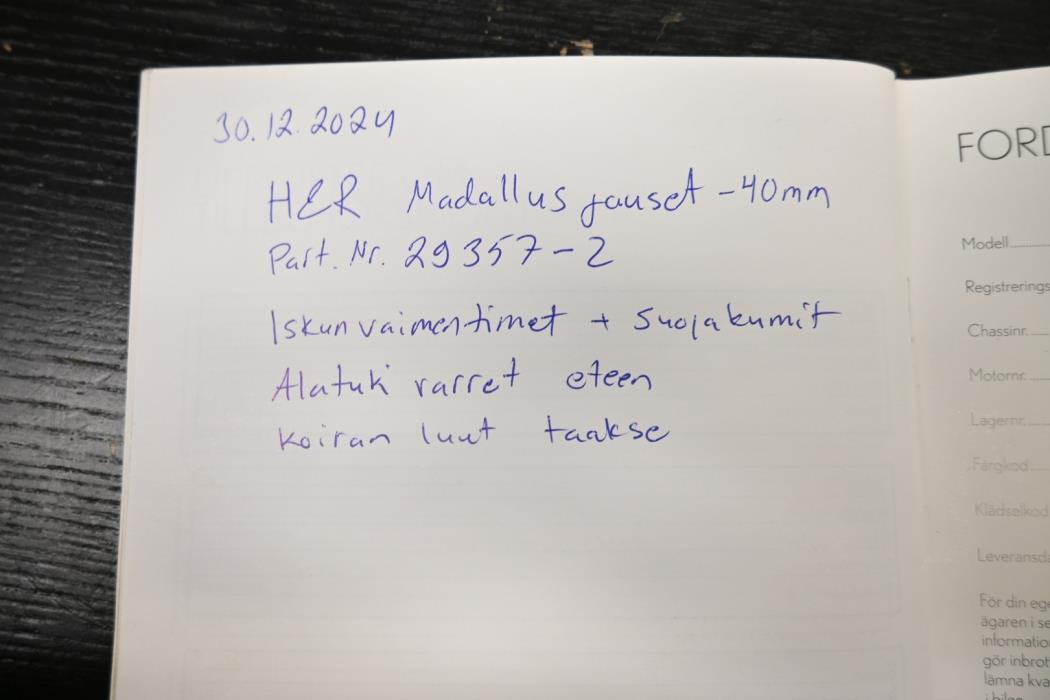 30.12.2024
H&R Madallus jouset -40mm
Part. Nr. 29357-2
Iskunvaimentimet + Suojakumit
Alatuki varret eteen
Koiran luut taakse
FORD
Modell
Registrerings
Chassinr.
Motornr.
Lagernr.
Färgkod
Klädselkod
Leveransda
För din ege
ägaren i se
informatio
gör inbrot
lämna kva
i bilen